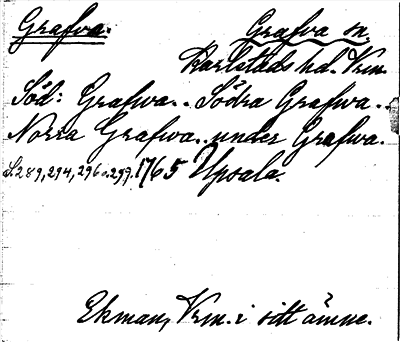 Grafva.
Grafva sn.
Karlstads hd. Vrm.
Söd: Grafwa.. Södra Grafwa..
Norra Grafwa.. under Grafwa.
S. 289, 294, 296 o. 297. 1765 Upsala.
Ekman, Vrm. i sitt ämne.